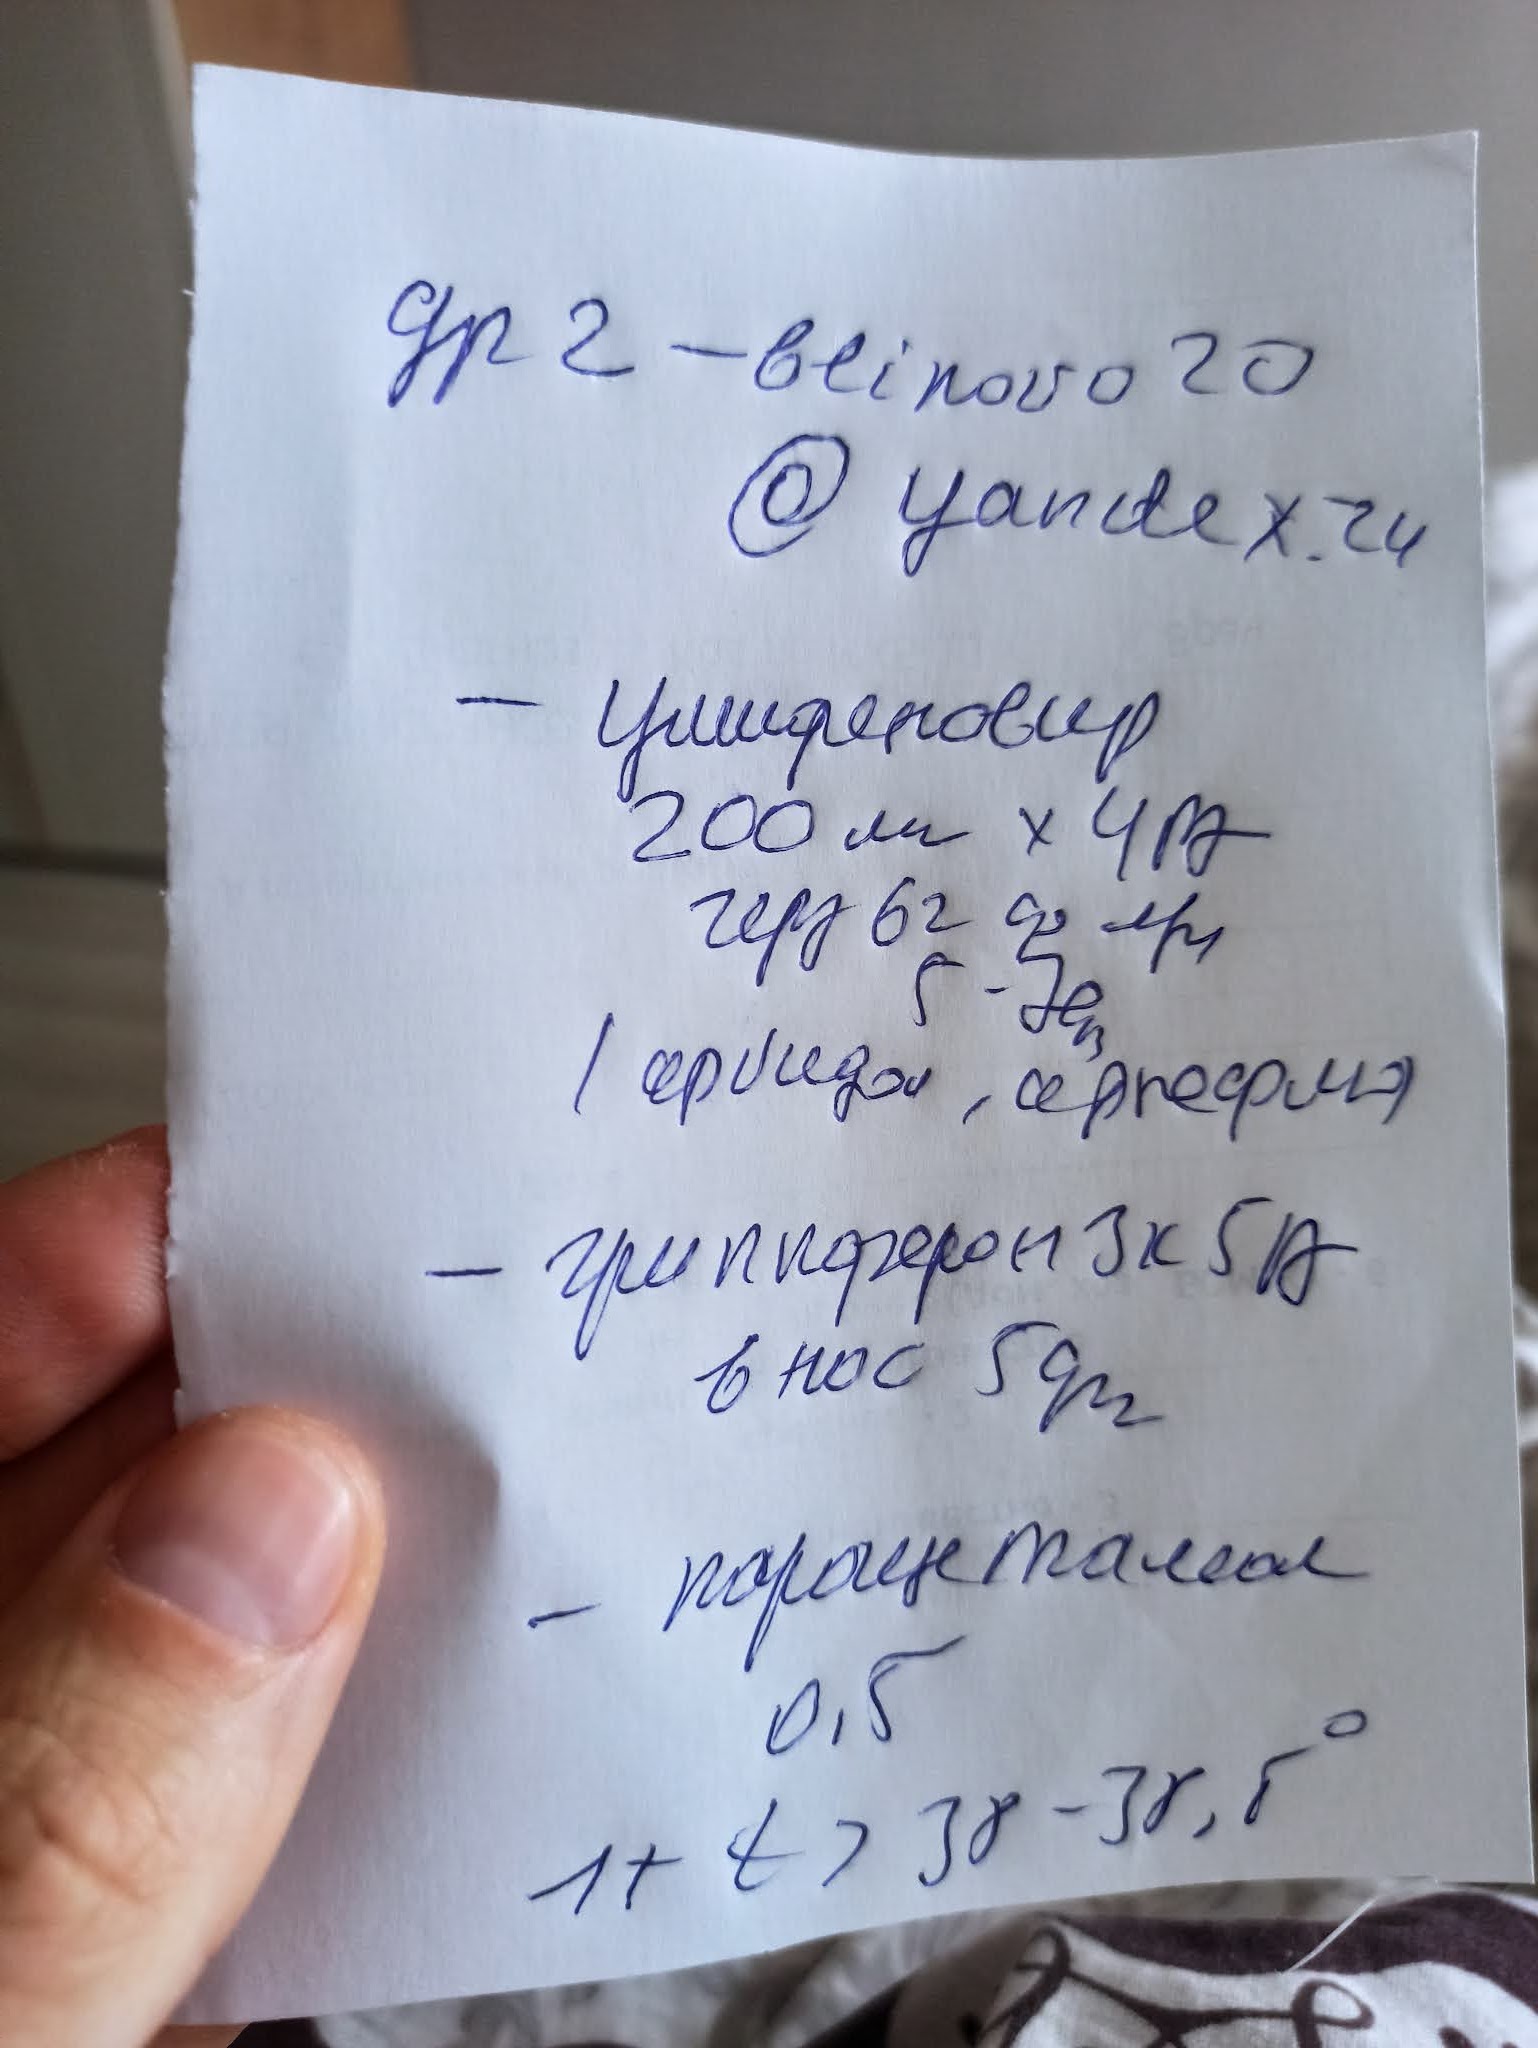 gp2-blinovo20
@yandex.ru
- Умифеновир
200 мг х 4 р/д
через 6 г до еды
5-7 дн
(арбидол, арпефлю)
- гриппферон 3к 5 р/д
в нос 5 дн
- парацетамол
0,5
1т t > 38-38,5°